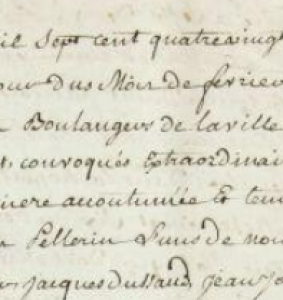 il Sept cent quatrevingt
our dus Mois de fevrier
Boulangers de la ville
convoqués Extraordinai
niere acoutumée Et ten
Pellerin l'uns de nou
Jacques dussaud, jean jo